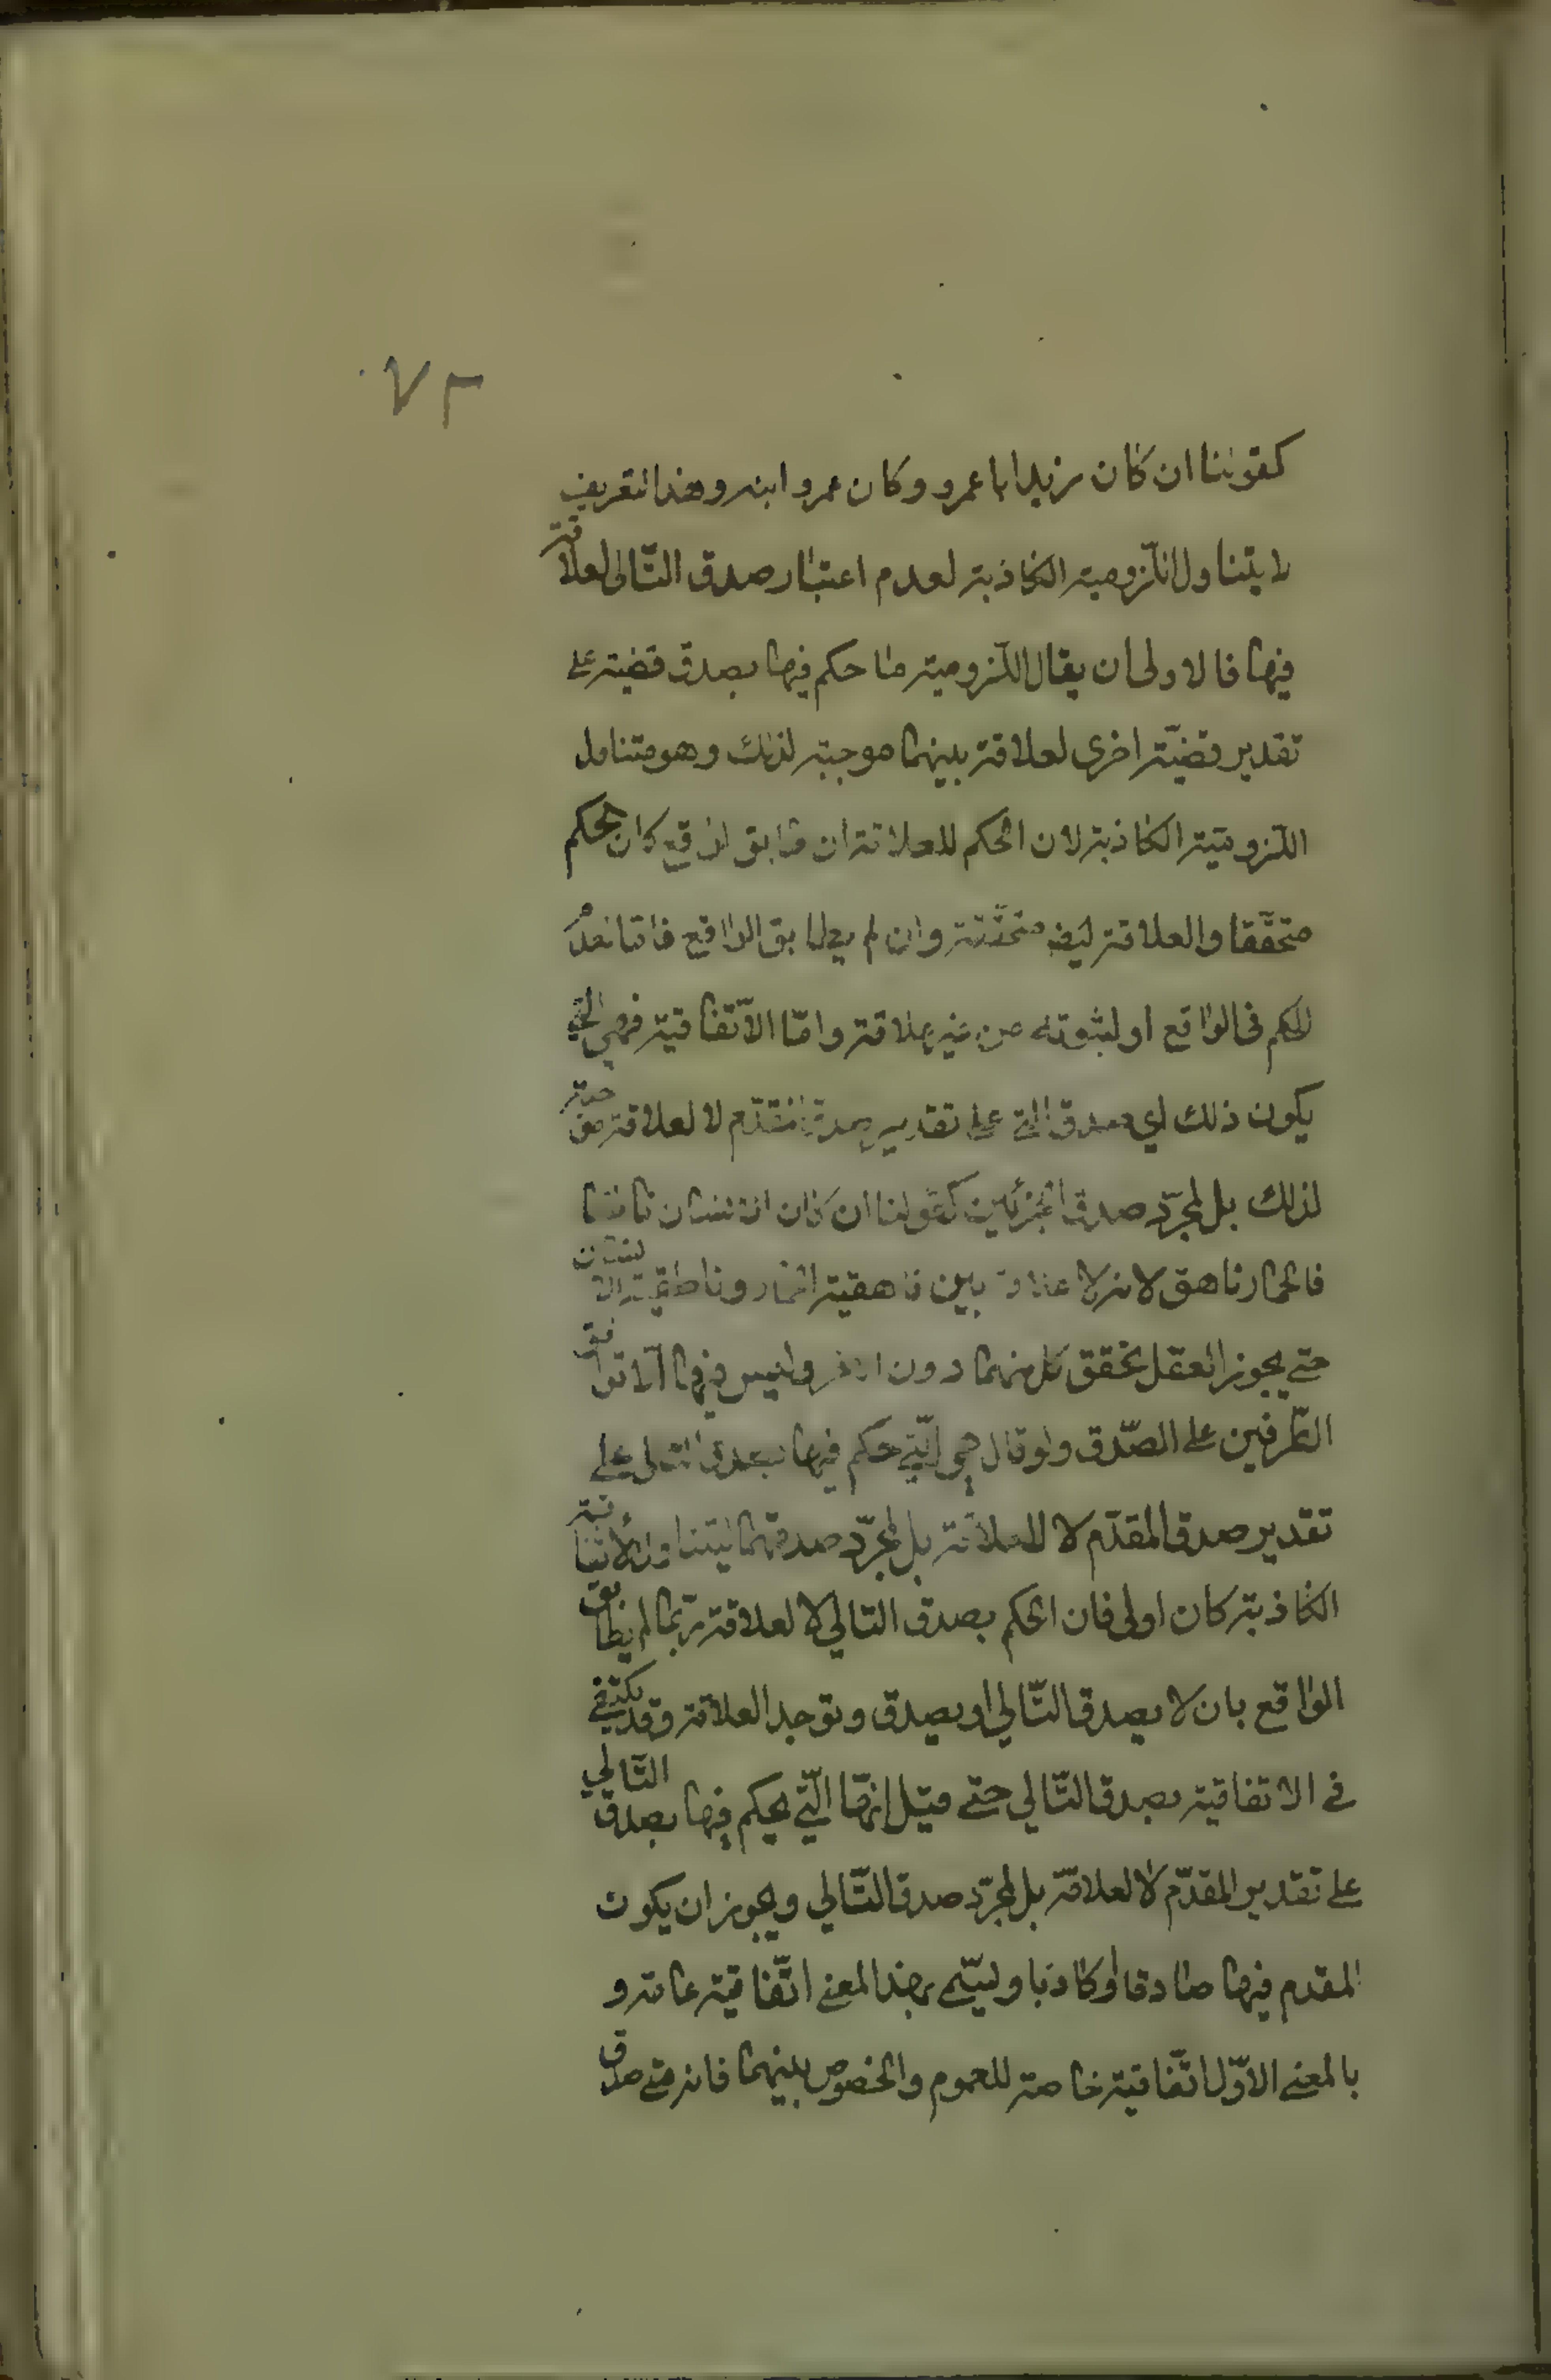 ٧٢
كقولنا ان كان زيد ابا عمرو وكان عمرو ابنه وهذا التعريف
لا يتناول اللزومية الكاذبة لعدم اعتبار صدق التالى لعلاقة
فيها فالاولى ان يقال اللزومية ما حكم فيها بصدق قضية على
تقدير قضيّة اخرى لعلاقة بينهما موجبة لذلك وهو متناول
اللزوميّة الكاذبة لان الحكم للعلاقة ان طابق الواقع كان الحكم
متحقّقا والعلاقة ايضا متحقّقة وان لم يطابق الواقع فامّا لعدم
الحكم فى الواقع او لثبوته من غير علاقة وامّا الاتّفاقية فهي التي
يكون ذلك اي صدق التالي على تقدير صدق المقدّم لا لعلاقة موجبة
لذلك بل لمجرّد صدق الجزئين كقولنا ان كان الانسان ناطقا
فالحمار ناهق لانه لا علاقة بين ناهقية الحمار وناطقية الانسان
حتى يجوز العقل تحقق كل منهما دون الاخر وليس فيها الّا توافق
الطّرفين على الصّدق ولو قال هي الّتي حكم فيها بصدق التالى على
تقدير صدق المقدّم لا للعلاقة بل لمجرّد صدقهما ليتناول الاتفاقية
الكاذبة كان اولى فان الحكم بصدق التالي لا لعلاقة ربّما لم يطابق
الواقع بان لا يصدق التّالي او يصدق وتوجد العلاقة وقد يكتفي
في الاتفاقية بصدق التّالي حتّى قيل انّها الّتي يحكم فيها بصدق التّالي
على تقدير المقدّم لا لعلاقة بل لمجرّد صدق التّالي ويجوز ان يكون
المقدم فيها صادقا او كاذبا ويسمّى بهذا المعنى اتّفاقية عامة و
بالمعنى الاوّل اتّفاقية خاصة للعموم والخصوص بينهما فانه متى صدق